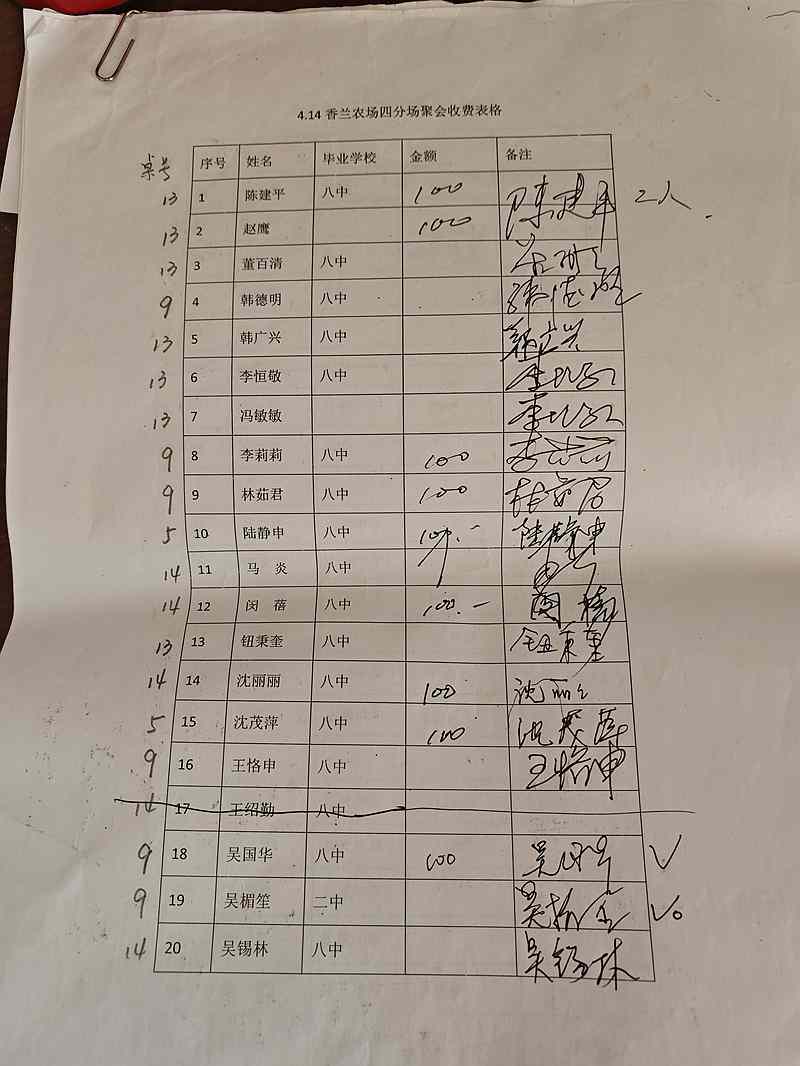 4.14 香兰农场四分场聚会收费表格
桌号 序号 姓名 毕业学校 金额 备注
13 1 陈建平 八中 100 陈建平 2人
13 2 赵鹰 100
13 3 董百清 八中
9 4 韩德明 八中 韩德明
13 5 韩广兴 八中
13 6 李恒敬 八中
13 7 冯敏敏
9 8 李莉莉 八中 100
9 9 林茹君 八中 100 林茹君
5 10 陆静申 八中 100.- 陆静申
14 11 马 炎 八中
14 12 闵 蓓 八中 100.-
13 13 钮秉奎 八中 钮秉奎
14 14 沈丽丽 八中 100 沈丽丽
5 15 沈茂萍 八中 100
9 16 王恪申 八中 王恪申
14 17 王绍勤 八中
9 18 吴国华 八中 100 吴国华 V
9 19 吴楣笙 二中
14 20 吴锡林 八中 吴锡林